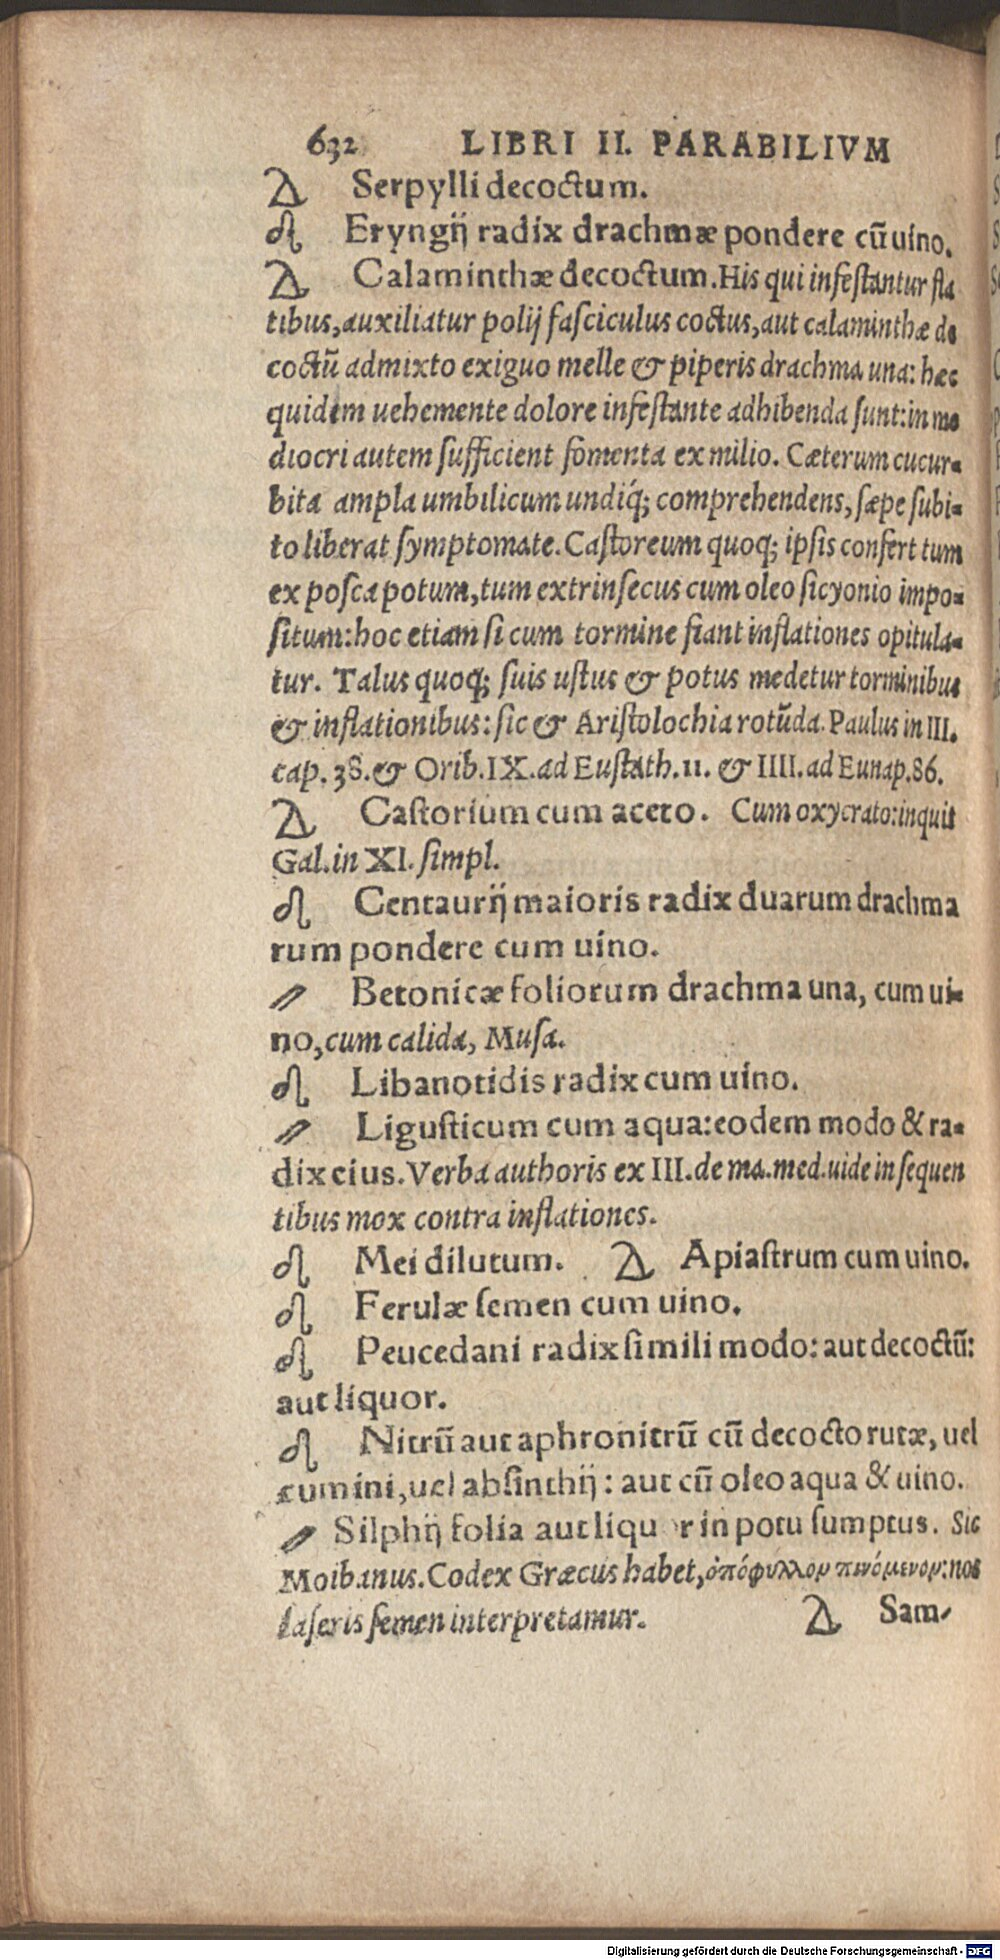 632 LIBRI II. PARABILIVM
Serpylli decoctum.
Eryngij radix drachmæ pondere cũ uino.
Calaminthæ decoctum. His qui infestantur fla
tibus, auxiliatur polij fasciculus coctus, aut calaminthæ de
coctũ admixto exiguo melle & piperis drachma una: hæc
quidem uehemente dolore infestante adhibenda sunt: in me
diocri autem sufficient fomenta ex milio. Cæterum cucur-
bita ampla umbilicum undiq́; comprehendens, sæpe subi-
to liberat symptomate. Castoreum quoq; ipsis confert tum
ex posca potum, tum extrinsecus cum oleo sicyonio impo-
situm: hoc etiam si cum tormine fiant inflationes opitula-
tur. Talus quoq; suis ustus & potus medetur torminibus
& inflationibus: sic & Aristolochia rotũda. Paulus in III.
cap. 38. & Orib. IX. ad Eustath. 11. & IIII. ad Eunap. 86.
Castorium cum aceto. Cum oxycrato: inquit
Gal. in XI. simpl.
Centaurij maioris radix duarum drachma
rum pondere cum uino.
Betonicæ foliorum drachma una, cum ui-
no, cum calida, Musa.
Libanotidis radix cum uino.
Ligusticum cum aqua: eodem modo & ra-
dix eius. Verba authoris ex III. de ma. med. uide in sequen
tibus mox contra inflationes.
Mei dilutum. Apiastrum cum uino.
Ferulæ semen cum uino.
Peucedani radix simili modo: aut decoctũ:
aut liquor.
Nitrũ aut aphronitrũ cũ decocto rutæ, uel
cumini, uel absinthij: aut cũ oleo aqua & uino.
Silphij folia aut liqu r in potu sumptus. Sic
Moibanus. Codex Græcus habet, ὀπόφυλλον πινόμενον: nos
laseris semen interpretamur.
Sam-
Digitalisierung gefördert durch die Deutsche Forschungsgemeinschaft - DFG